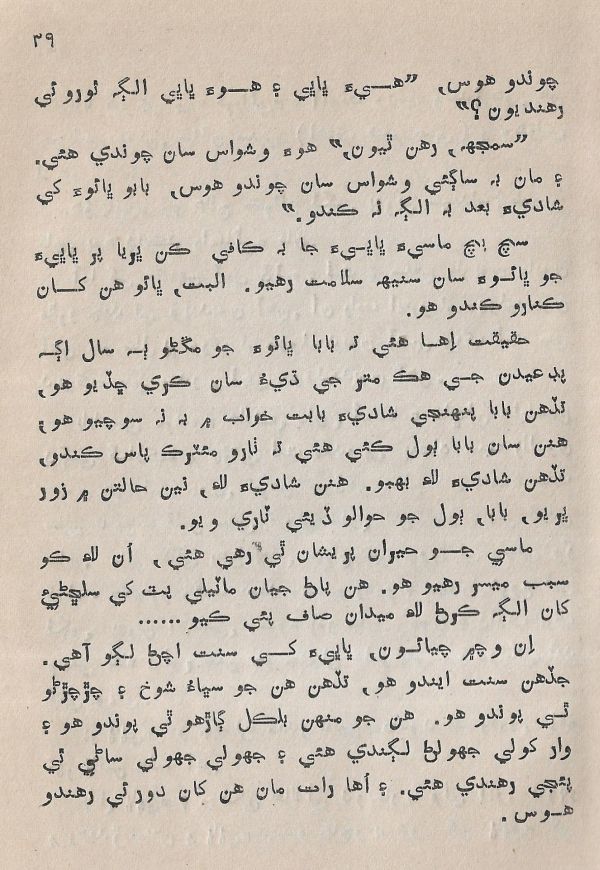 ۳۹
چوندو هوس، ”هيءَ ڀاڀي ۽ هوءَ ڀاڀي الڳ ٿورو ئي
رهنديون؟“
”سمجهه، رهن ٿيون،“ هوءَ وشواس سان چوندي هئي.
۽ مان به ساڳئي وشواس سان چوندو هوس، بابو ڀائوءَ کي
شاديءَ بعد به الڳ نه ڪندو.“
سچ پچ ماسيءَ ڀاڀيءَ جا به ڪافي ڪن ڀريا پر ڀاڀيءَ
جو ڀائوءَ سان سنيهه سلامت رهيو. البت، ڀائو هن کان
ڪنارو ڪندو هو.
حقيقت اِها هئي ته بابا ڀائوءَ جو مڱڻو ٻه سال اڳ
پڊعيدن جي هڪ متر جي ڌيءُ سان ڪري ڇڏيو هو،
تڏهن بابا پنهنجي شاديءَ بابت خواب ۾ به نه سوچيو هو؛
هنن سان بابا ٻول ڪئي هئي ته نارو مئٽرڪ پاس ڪندو،
تڏهن شاديءَ لاءِ ٻهبو. هنن شاديءَ لاءِ، تين حالتن ۾ زور
ڀريو، بابا، ٻول جو حوالو ڏيئي ٽاري ويو.
ماسي جو حيران پريشان ٿي رهي هئي، اُن لاءِ ڪو
سبب ميسر رهيو هو. هن پاڻ جيان ماٽيلي پٽ کي سلڇڻيءَ
کان الڳ ڪرڻ لاءِ ميدان صاف پئي ڪيو......
اِن وچ۾ چيائون، ڀاڀيءَ کي سنت اچڻ لڳو آهي.
جڏهن سنت ايندو هو، تڏهن هن جو سڀاءُ شوخ ۽ چڙچڙڻو
ٿي پوندو هو. هن جو منهن بلڪل ڳاڙهو ٿي پوندو هو ۽
وار کولي جهولڻ لڳندي هئي ۽ جهولي جهولي ساڻي ٿي
پئجي رهندي هئي. ۽ اُها رات مان هن کان دور ئي رهندو
هوس.